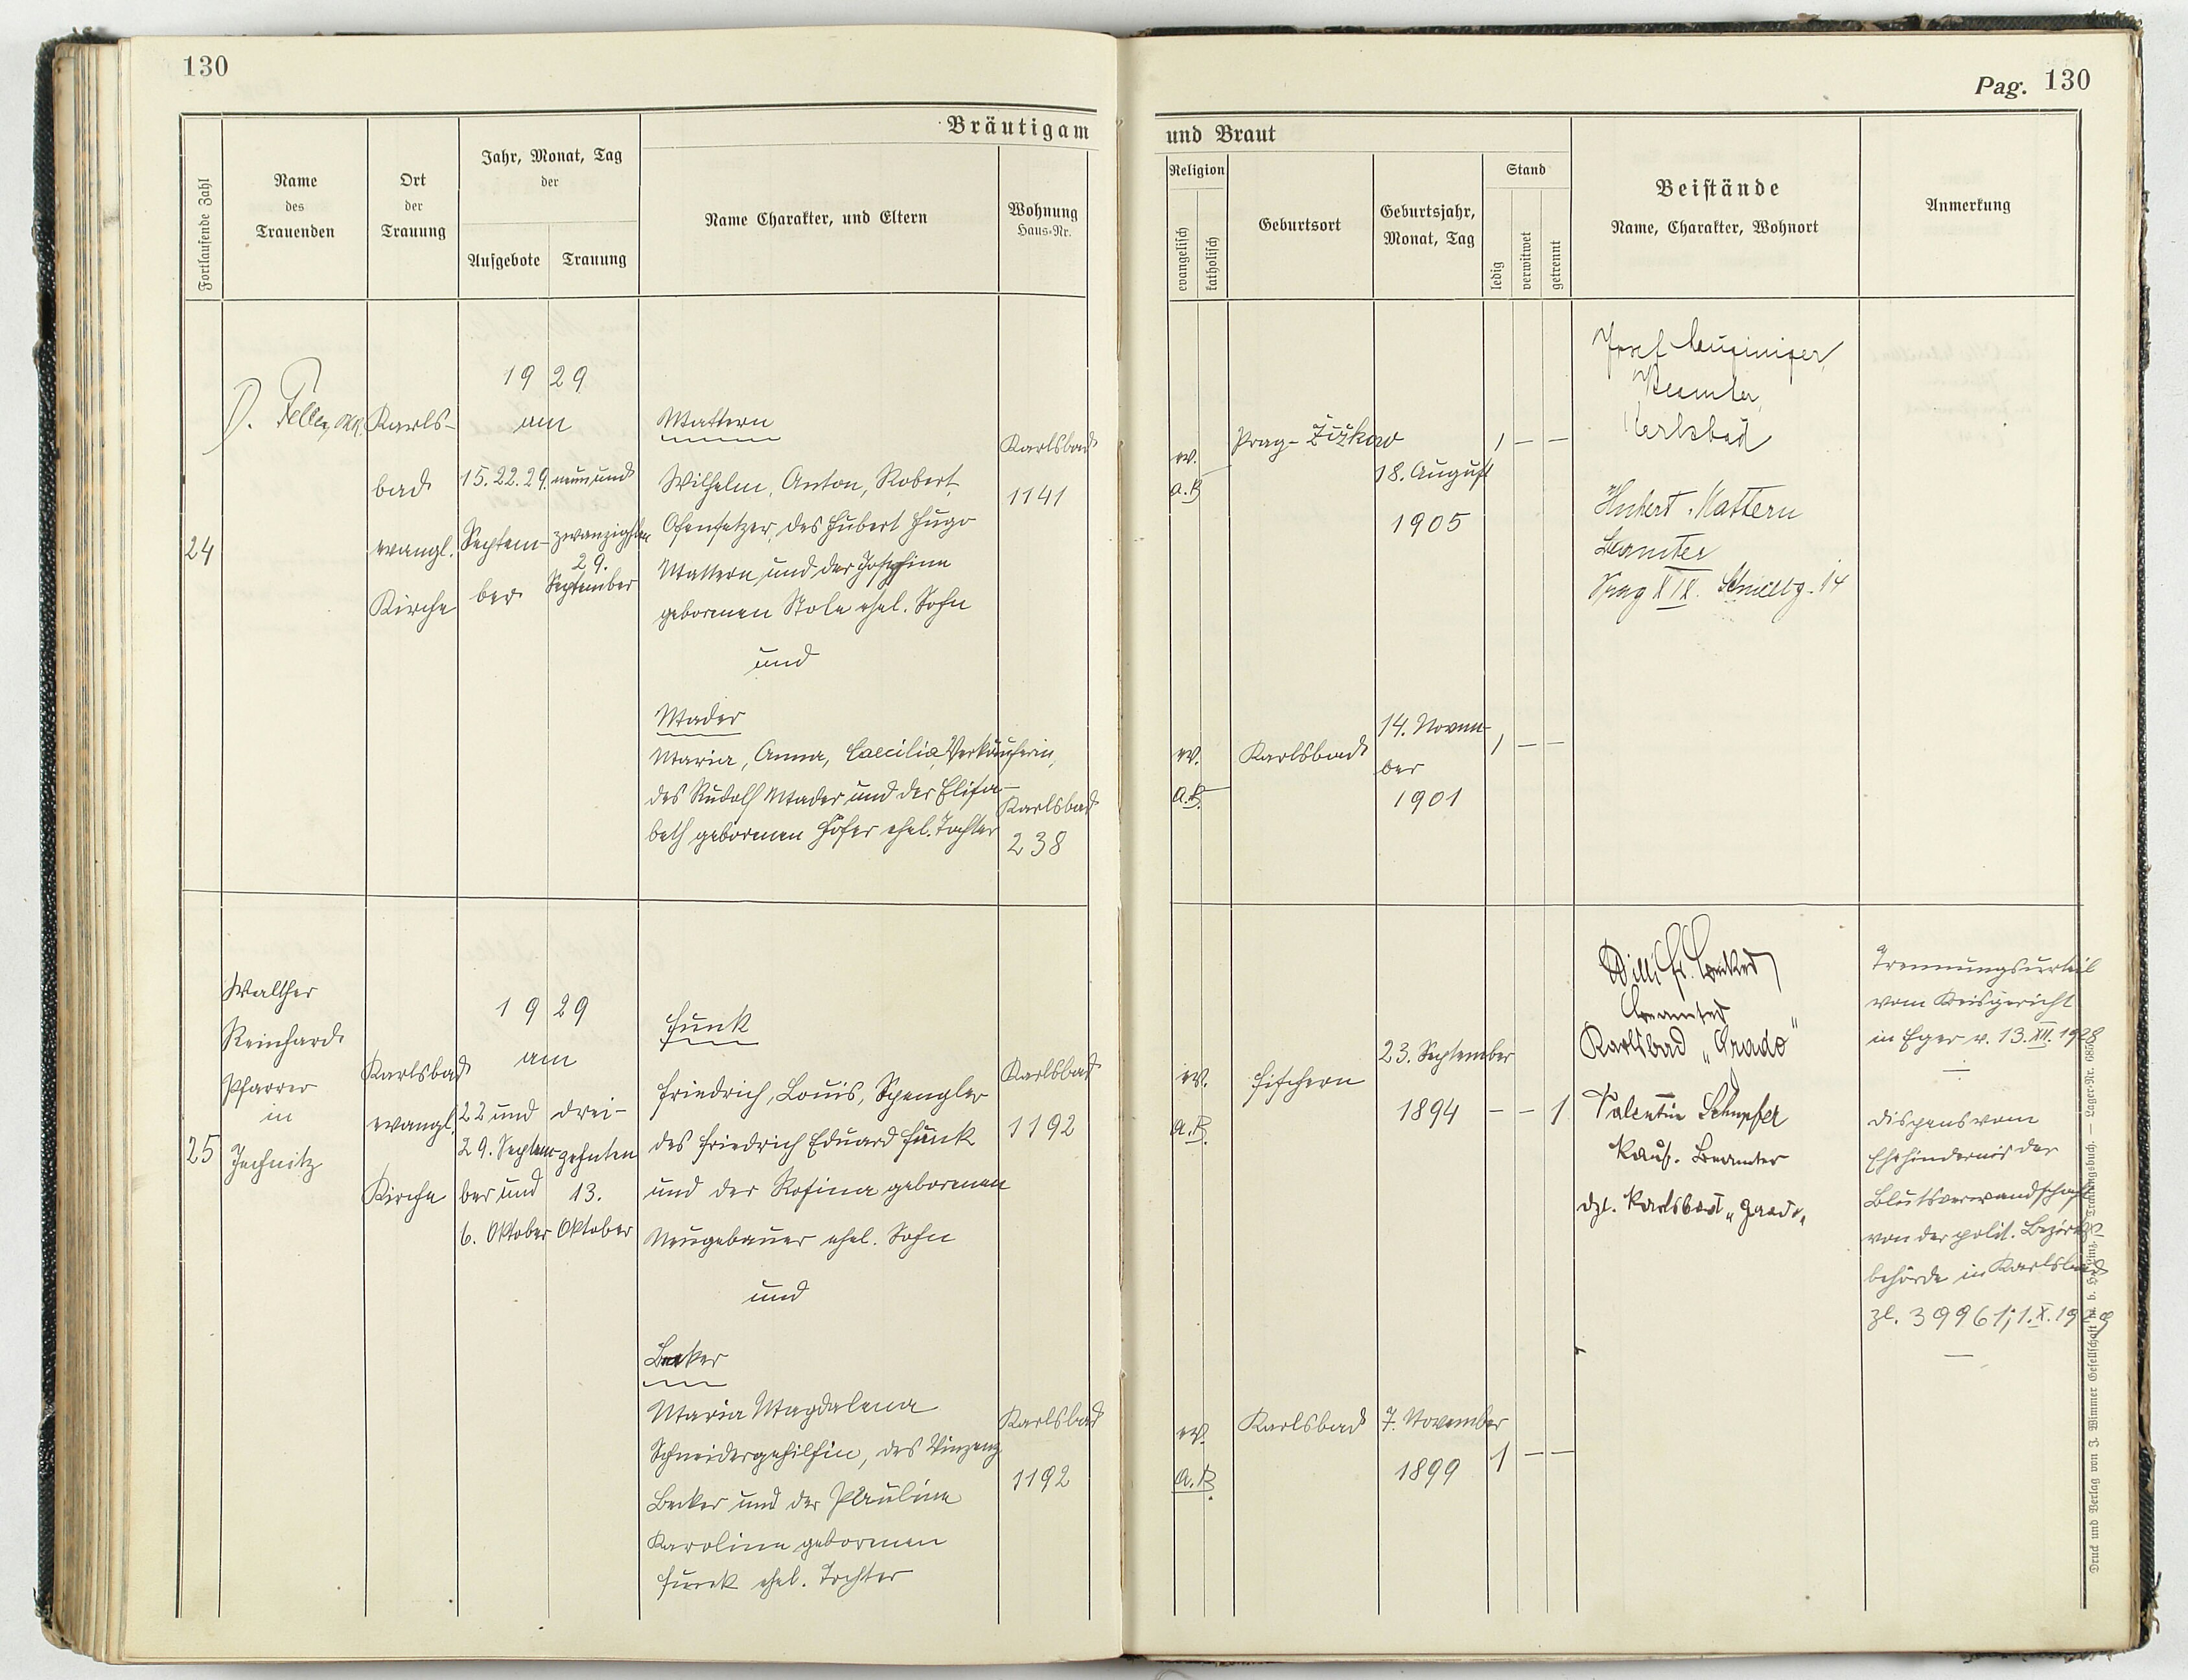 130
Pag. 130
Bräutigam
und Braut
Fortlaufende Zahl
Name
des
Trauenden
Ort
der
Trauung
Jahr, Monat, Tag
der
Aufgebote
Trauung
Name Charakter, und Eltern
Wohnung
Haus-Nr.
Religion
evangelisch
katholisch
Geburtsort
Geburtsjahr,
Monat, Tag
Stand
ledig
verwitwet
getrennt
Beistände
Name, Charakter, Wohnort
Anmerkung
24
D. Feller,
Karls-
bad
evangl.
Kirche
1929
am
15. 22. 29.
Septem-
ber
neunund
zwanzigsten
29.
September
Mattern
Wilhelm, Anton, Robert,
Ofensetzer, des Hubert Hugo
Mattern und der Josefine
geborenen Stole ehel. Sohn
und
Karlsbad
1141
Mader
Maria, Anna, Caecilia, Verkäuferin,
des Rudolf Mader und der Elisa-
beth geborenen Hofer ehel. Tochter
Karlsbad
238
ev.
a. B.
Prag-Žižkow
18. August
1905
1 — —
ev.
a. B.
Karlsbad
14. Novem-
ber
1901
1 — —
Josef
Beamter,
Karlsbad
Hubert Mattern
Beamter
Prag XIX. 14
25
Walther
Reinhardt
Pfarrer
in
Jechnitz
Karlsbad
evangl.
Kirche
1929
am
22 und
29. Septem-
ber und
6. Oktober
drei-
zehnten
13.
Oktober
Funk
Friedrich, Louis, Spengler
des Friedrich Eduard Funk
und der Rosina geborenen
Neugebauer ehel. Sohn
und
Karlsbad
1192
Becker
Maria Magdalena
Schneidergehilfin, des Vinzenz
Becker und der Pauline
Karoline geborenen
Funk ehel. Tochter
Karlsbad
1192
ev.
a. B.
Fischern
23. September
1894
— — 1
ev.
a. B.
Karlsbad
7. November
1899
1 — —
Willi Fr. Becker
Beamter
Karlsbad „Grado"
Valentin Schupfer
Kauf. Beamter
dzt. Karlsbad „Grado"
Trennungsurteil
vom Kreisgericht
in Eger v. 13. XII. 1928
—
Dispens vom
Ehehindernis der
Blutsverwandschaft
von der polit. Bezirks
behörde in Karlsbad
zl. 39961; 1. X. 1929
—
Druck und Verlag von J. Wimmer Gesellschaft m. b. H., Linz. Trauungsbuch. — Lager-Nr. 685